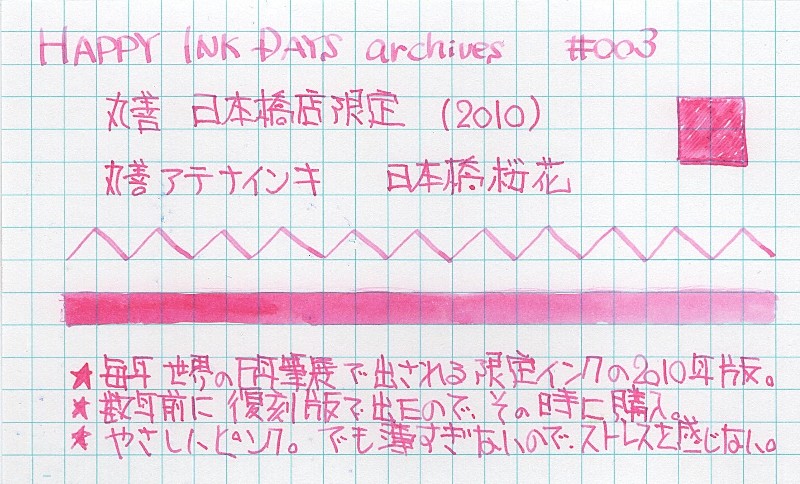 HAPPY INK DAYS archives #003
丸善 日本橋店限定 (2010)
丸善アテナインキ 日本橋桜花
★毎年 世界の万年筆展で出される限定インクの2010年版。
★数年前に復刻版で出たので、その時に購入。
★やさしいピンク。でも薄すぎないので、ストレスを感じない。